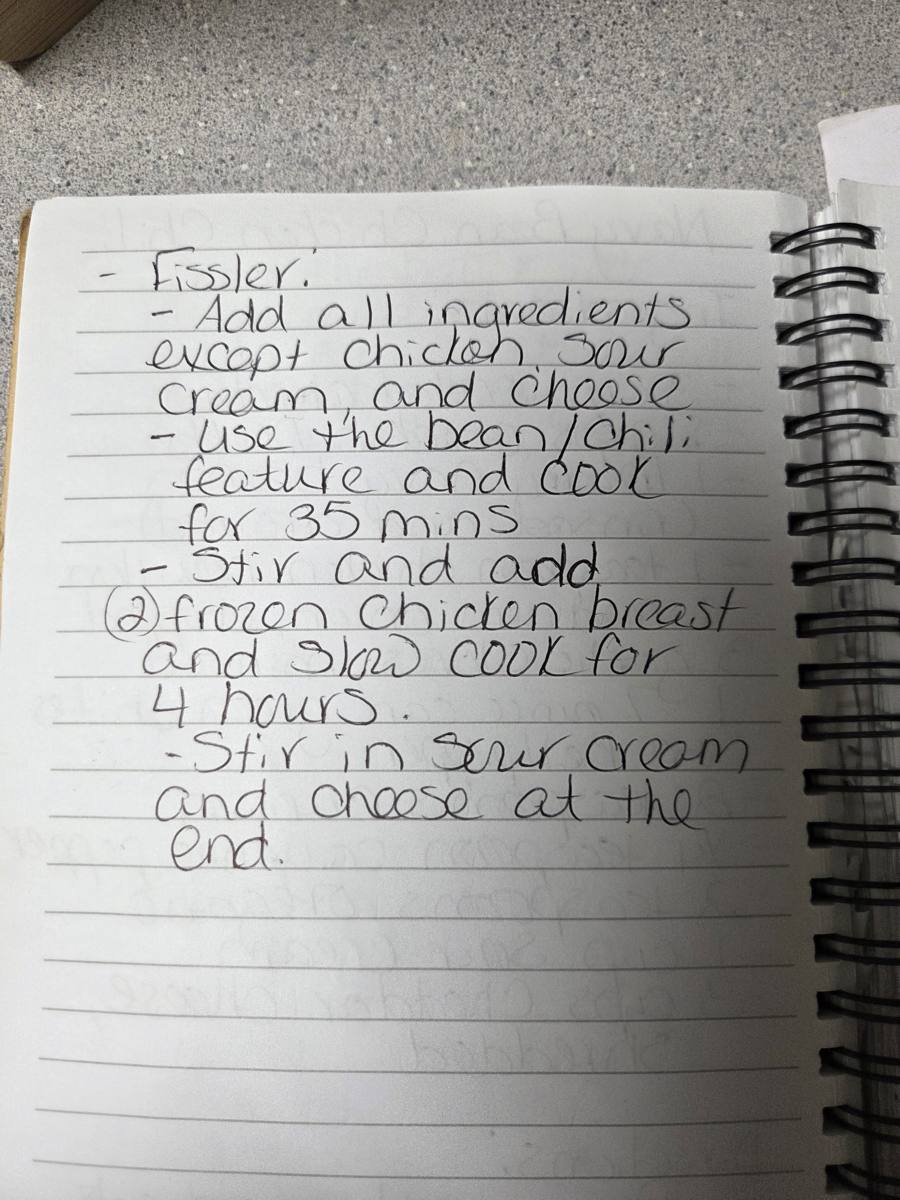 - Fissler:
- Add all ingredients
except chicken, sour
cream, and cheese
- Use the bean/chili
feature and cook
for 35 mins
- Stir and add
(2) frozen chicken breast
and slow cook for
4 hours.
- Stir in sour cream
and cheese at the
end.